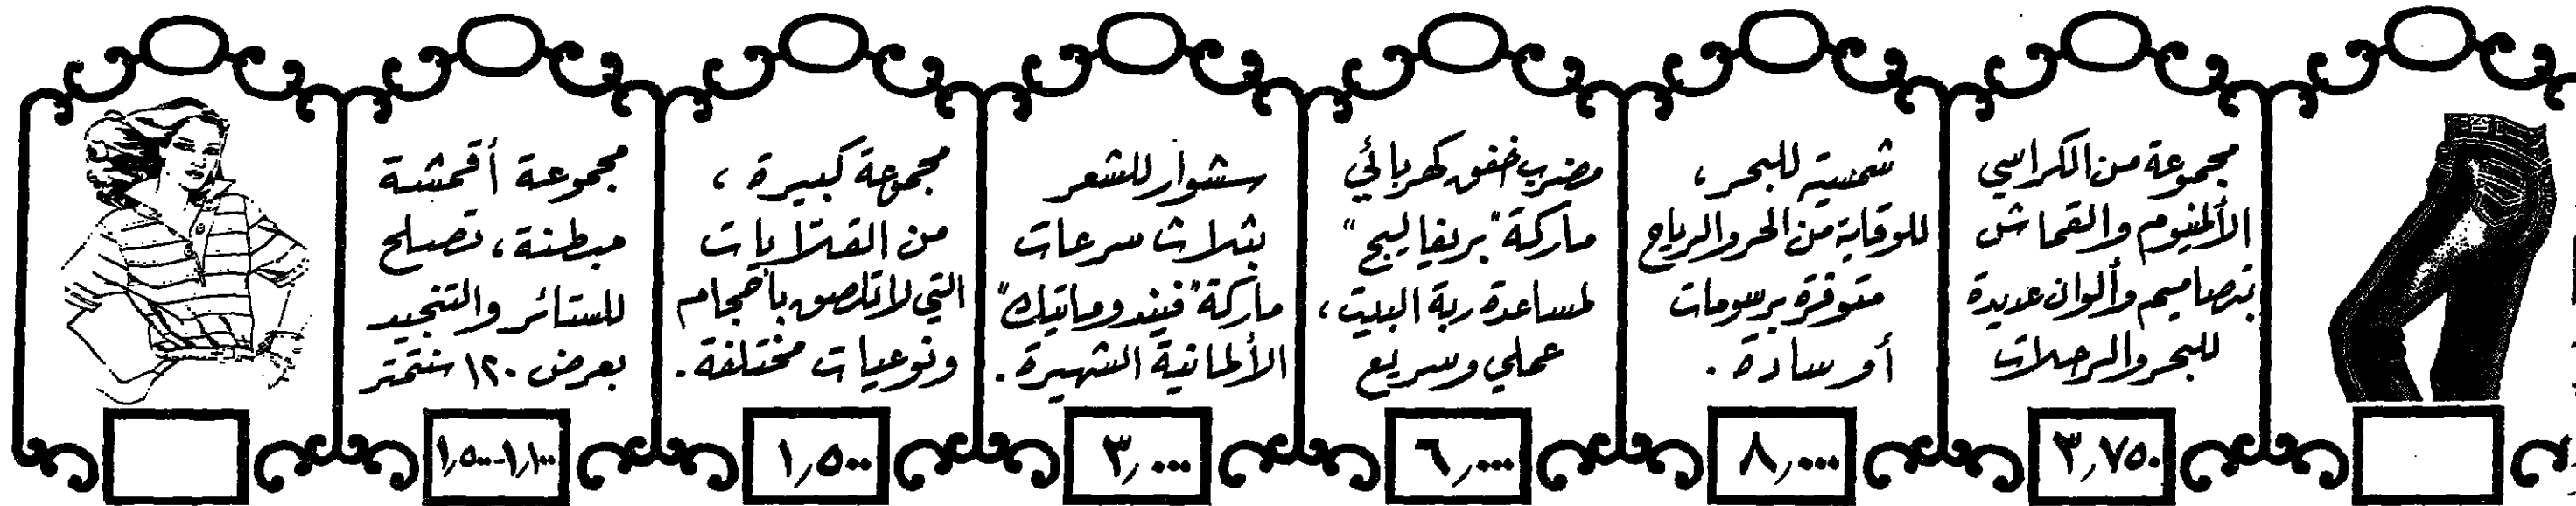 مجموعة من الكراسي
الألمنيوم والقماش
بتصاميم وألوان عديدة
للبحر والرحلات
٣,٧٥٠
شمسية للبحر،
للوقاية من الحر والرياح
متوفرة برسومات
أو سادة.
٨,٠٠٠
مضرب خفق كهربائي
ماركة "بريفاليج"
لمساعدة ربة البيت،
عملي وسريع
٦,٠٠٠
سشوار للشعر
بثلاث سرعات
ماركة "فيندوماتيك"
الألمانية الشهيرة.
٣,٠٠٠
مجموعة كبيرة،
من القلّايات
التي لا تلصق بأحجام
ونوعيات مختلفة.
١,٥٠٠
مجموعة أقمشة
مبطنة، تصلح
للستائر والتنجيد
بعرض ١٢٠ سنتمتر
١,٥٠٠-١,١٠٠